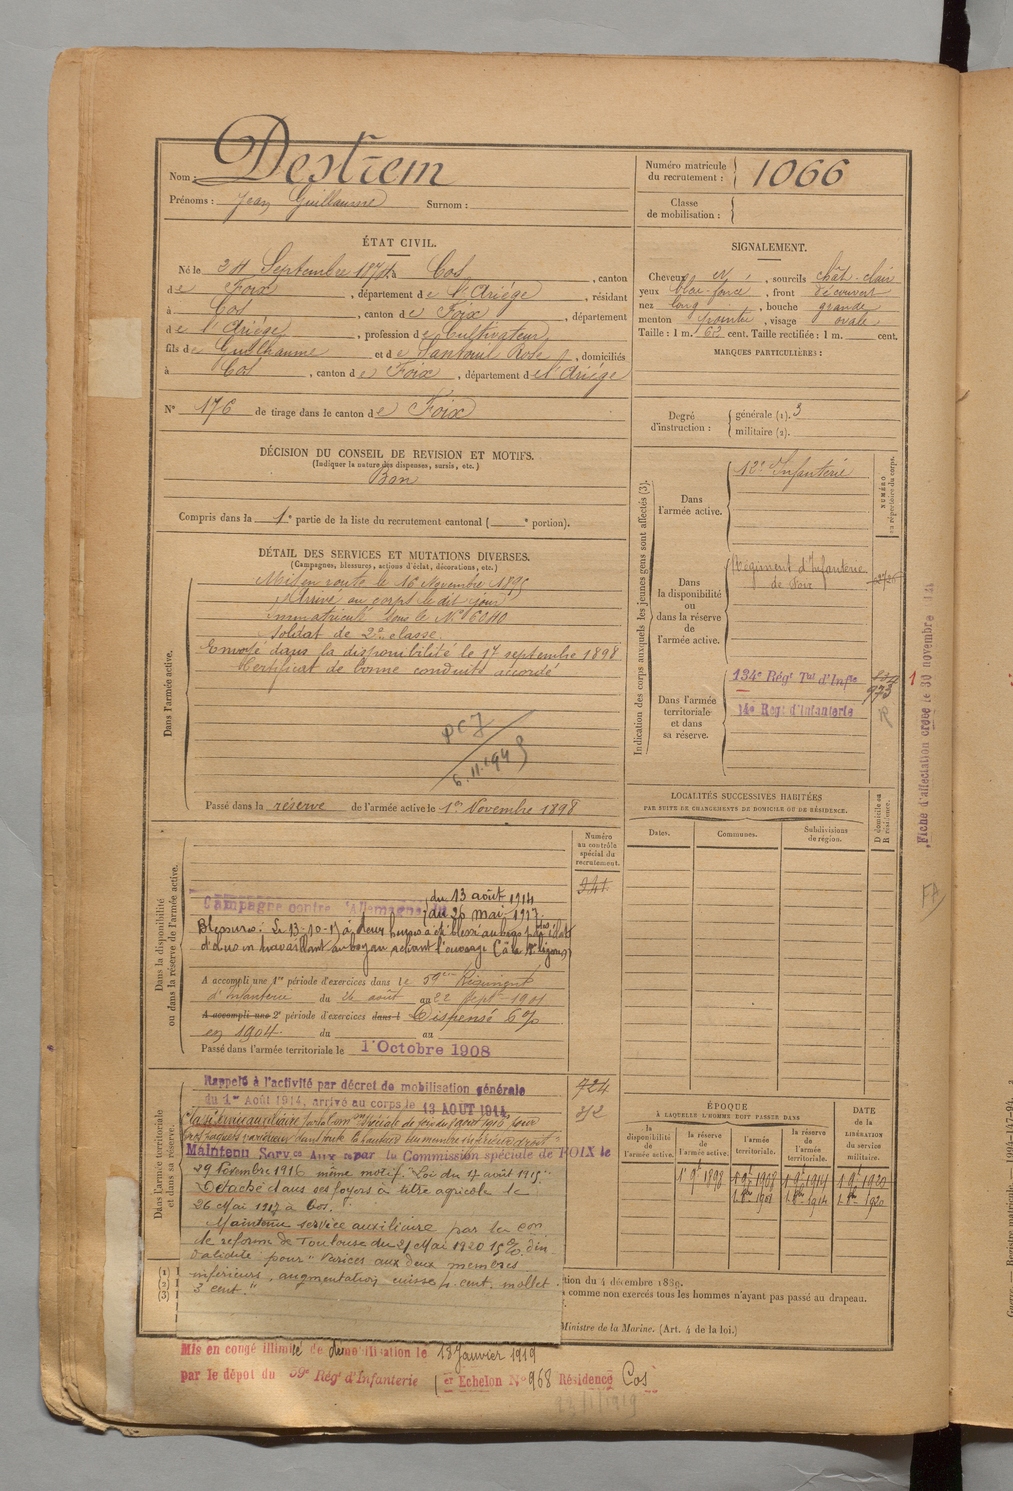 Nom : Destrem
Prénoms : Jean Guillaume Surnom :
Numéro matricule du recrutement : 1066
Classe de mobilisation :
ÉTAT CIVIL.
Né le 24 Septembre 187 à Cos, canton
de Foix, département de l'Ariège, résidant
à Cos, canton de Foix, département
de l'Ariège, profession de Cultivateur,
fils de Guilhaume et de Santouil Rose, domiciliés
à Cos, canton de Foix, département de l'Ariège
N° 176 de tirage dans le canton de Foix
SIGNALEMENT.
Cheveux, sourcils chât-clair
yeux bleu-foncé, front découvert
nez long, bouche grande
menton pointu, visage ovale
Taille : 1 m. 62 cent. Taille rectifiée : 1 m. cent.
MARQUES PARTICULIÈRES :
Degré d'instruction : générale (1). 3
militaire (2).
DÉCISION DU CONSEIL DE REVISION ET MOTIFS.
(Indiquer la nature des dispenses, sursis, etc.)
Bon
Compris dans la 1e partie de la liste du recrutement cantonal ( e portion).
DÉTAIL DES SERVICES ET MUTATIONS DIVERSES.
(Campagnes, blessures, actions d'éclat, décorations, etc.)
Dans l'armée active.
Mis en route le 16 Novembre 1895
Arrivé au corps le dit jour
immatriculé sous le N°
Soldat de 2e classe.
Envoyé dans la disponibilité le 17 septembre 1898
Certificat de bonne conduite accordé
6.11.1949
Passé dans la réserve de l'armée active le 1er Novembre 1898
Indication des corps auxquels les jeunes gens sont affectés (3).
NUMÉRO au répertoire du corps.
Dans l'armée active.
Infanterie
Dans la disponibilité ou dans la réserve de l'armée active.
Régiment d'Infanterie
de Foix
Dans l'armée territoriale et dans sa réserve.
134e Régt Tal d'Infie
973
14e Régt d'Infanterie
LOCALITÉS SUCCESSIVES HABITÉES
PAR SUITE DE CHANGEMENTS DE DOMICILE OU DE RÉSIDENCE.
Dates. Communes. Subdivisions de région. D domicile ou R résidence.
Fiche d'affectation créée le 30 novembre
Dans la disponibilité ou dans la réserve de l'armée active.
Numéro au contrôle spécial du recrutement.
341
Campagne contre l'Allemagne du 13 août 1914
au 26 mai 1917.
Blessures : Le 13-10-15 à deux heures a été blessé au bras par éclats
d'obus en travaillant au boyau
A accompli une 1re période d'exercices dans le 59e Régiment
d'Infanterie du 26 août au 22 Sept 1901
A accompli une 2e période d'exercices dans l Dispensé 6%
en 1904. du au
Passé dans l'armée territoriale le 1 Octobre 1908
Dans l'armée territoriale et dans sa réserve.
Rappelé à l'activité par décret de mobilisation générale
du 1er Août 1914, arrivé au corps le 13 AOUT 1914.
724
Maintenu Servce Auxre par la Commission spéciale de FOIX le
29 Novembre 1916 même motif. "Loi du 17 août 1915"
Détaché dans ses foyers à titre agricole le
26 Mai 1917 à Cos.
Maintenu service auxiliaire par la con
de réforme de Toulouse du 21 Mai 1920 15% d'in
validité pour "Varices aux deux membres
inférieurs, augmentation cuisse 4 cent. mollet
3 cent."
ÉPOQUE
À LAQUELLE L'HOMME DOIT PASSER DANS
la disponibilité de l'armée active. la réserve de l'armée active. l'armée territoriale. la réserve de l'armée territoriale.
DATE DE LA LIBÉRATION DU SERVICE MILITAIRE.
1 9e 1898 1 9e 1908 1 9e 1914 1 9e 1920
1. 8bre 1908 1. 8bre 1914 1. 8bre 1920
(1)
(2)
(3)
tion du 4 décembre 1889.
comme non exercés tous les hommes n'ayant pas passé au drapeau.
Ministre de la Marine. (Art. 4 de la loi.)
Mis en congé illimité de démobilisation le 18 Janvier 1919
par le dépôt du 59e Régt d'Infanterie er Echelon N° 968 Résidence Cos